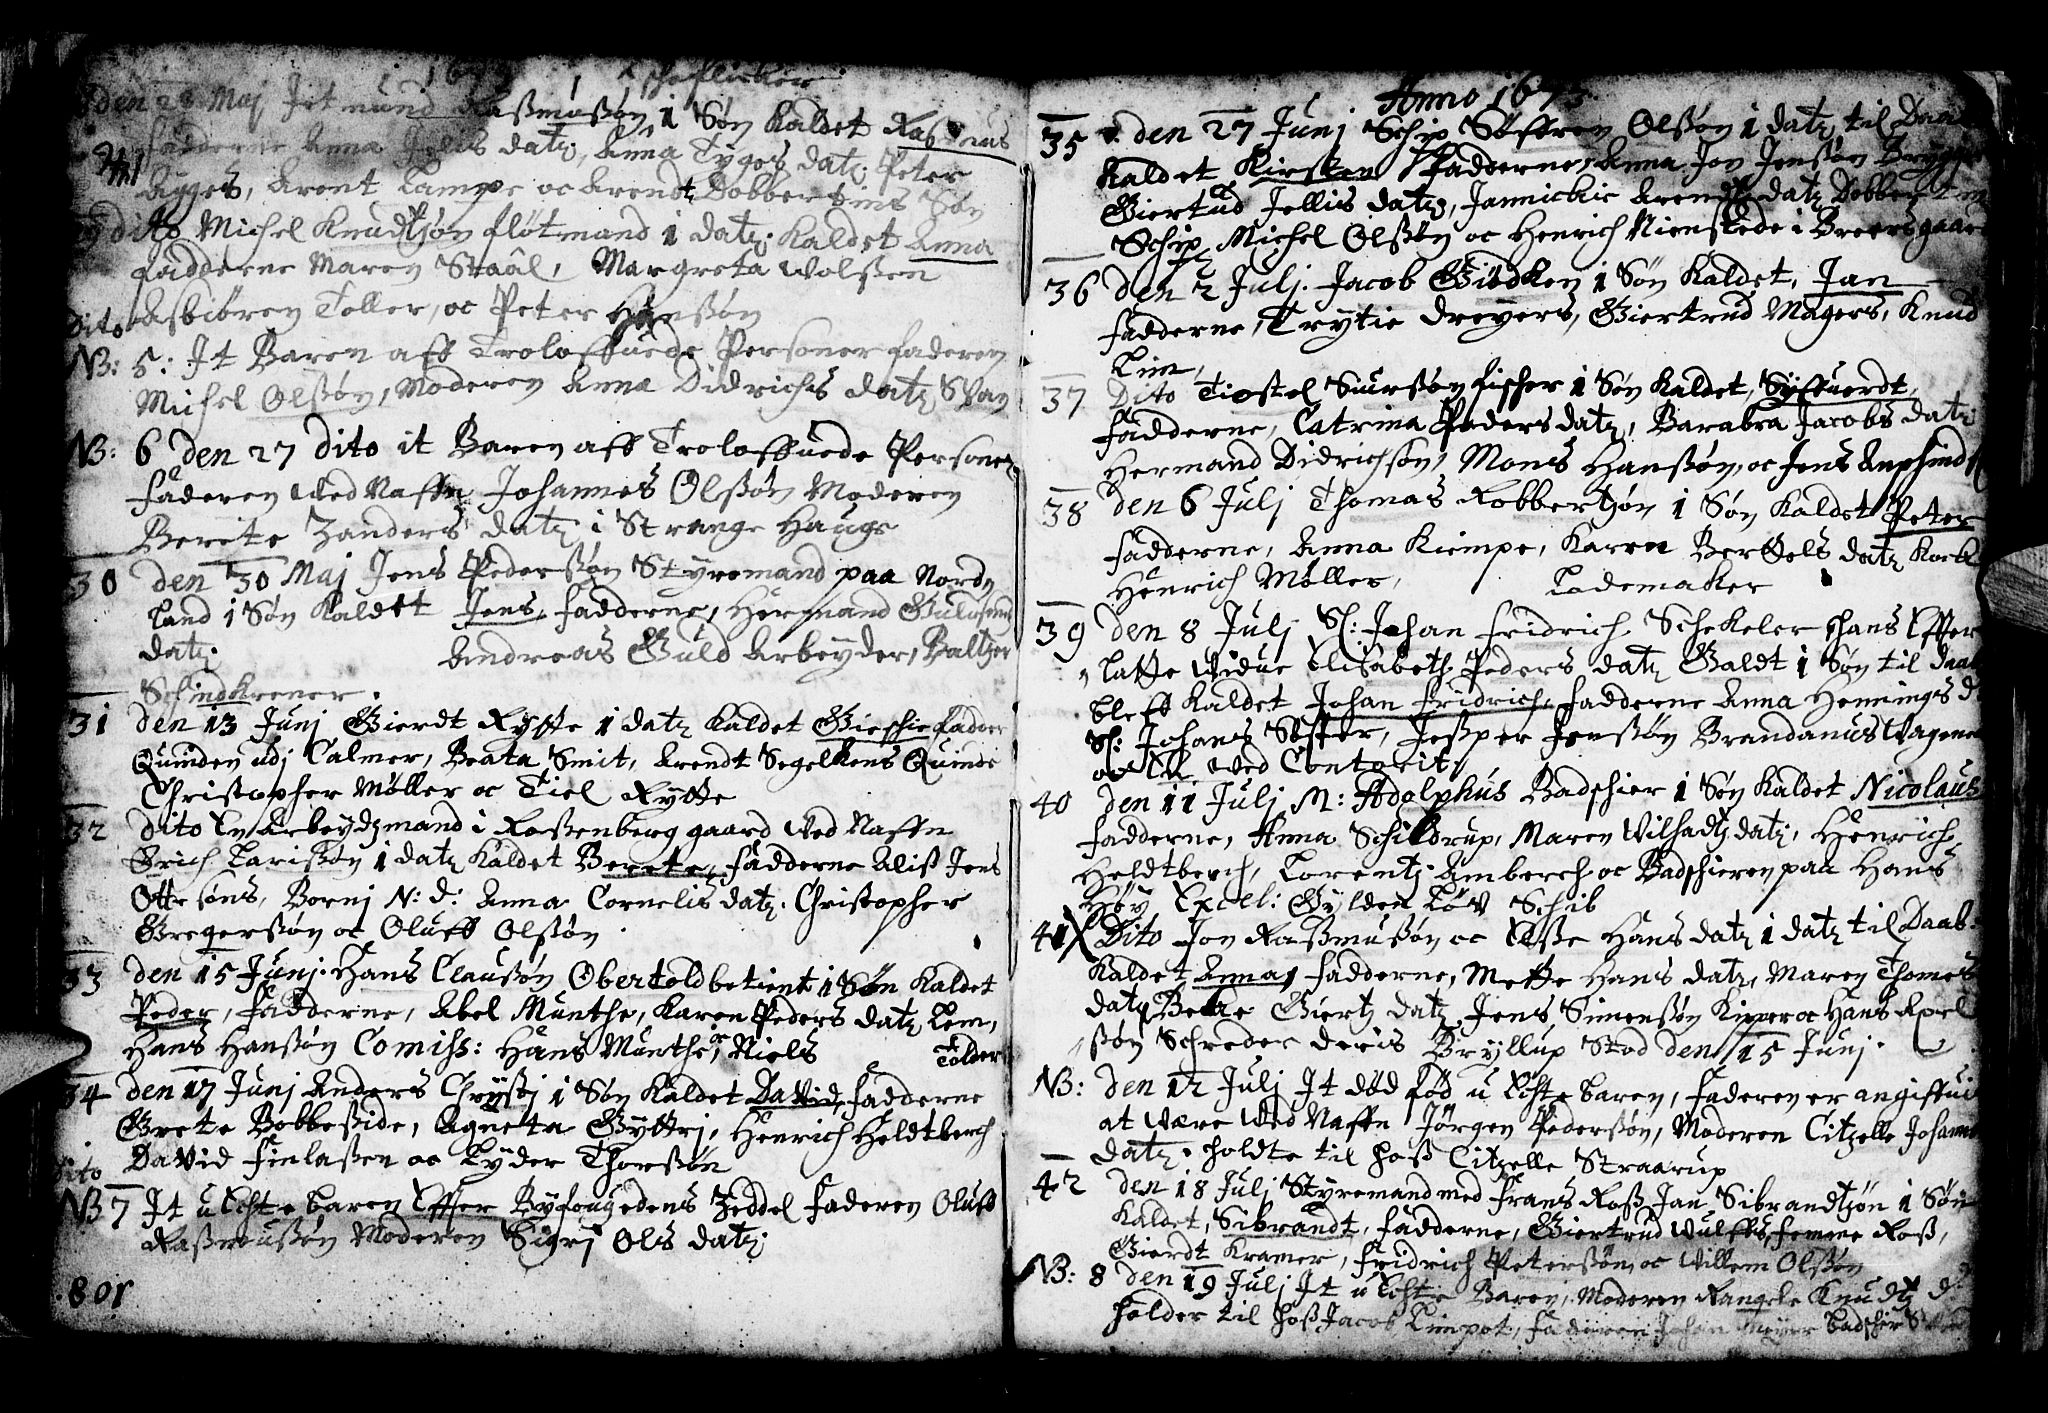 167
den 28 Maj Jetmund Raßmoßøn 1 Søn Kaldet Raßmus
Fadderne Anna Jelis datz, Anna Tyges datz Peter
Bagges, Arent Lampe oc Arendt Dobbertins Søn
dito Michel Knudtzøn fløtmand 1 datz. Kaldet Anna
Fadderne Maren Staal, Margreta Wolßen
Asbiören Toller, oc Peter Hanßøn
Dito
NB: 5: It Baren aff Troloffuede Personer faderen
Michel Olßøn, Moderen Anna Didrichs datz, Svan
NB: 6 den 27 dito it Baren aff Troloffuede Personer
Faderen Wed Naffn Johannes Olßøn Moderen
Berete Zanders datz i Strange Hauge
30 den 30 Maj Jens Pederßøn Styremand paa Nordn
Land 1 Søn Kaldet Jens, Fadderne, Hermand
datz. Andreas Guld Arbeyder, Baltzer
Schindkrener.
31 den 13 Junj Gierdt Rytte 1 datz Kaldet Gieschie Fadder
Quinden udj Calmer, Beata Smit, Arendt Segelkens Quinde
Christopher Møller oc Tiel Rytte
32 dito En Arbeydzmand i Roßenberg gaard Wed Naffn
Erich Larißøn 1 datz Kaldet Berete, Fadderne Aliß Jens
Ottesøns, Bornj N: d: Anna Cornelis datz. Christopher
Gregerßøn oc Oluff Olßøn.
33 den 15 Junj. Hans Claußøn Obertoldbetient 1 Søn Kaldet
Peder, Fadderne, Abel Munthe, Karen Peders datz Lem,
Hans Hanßøn Comiss: Hans Munthe, oc Niels Tolder
34 den 17 Junj Anders Chrystj 1 Søn Kaldet David, Fadderne
Grete Bobbeside, Agneta Gyttrj, Henrich Heldtberch
David Finlaßen oc Lyder Thorßøn
Dito
NB 7 It u Echte baren Effter Byfougedens Zeddel Faderen Oluff
Raßmußøn Moderen Sigrj Ols datz.
108
Anno 1673
35 den 27 Junj Schip Søffren Olßøn 1 datz til Daab
Kaldet Kirsken Fadderne, Anna Jon Jenßøn
Giertud Jellis datz, Jannickie Arendtz datz Dobbertin
Schip Michel Olßøn oc Henrich Nienstede i Breersgaard
36 den 2 Julj. Jacob Giødken 1 Søn Kaldet, Jan
Fadderne, Trytie Dreyers, Giertrud Magers, Knud
Lim,
37 Dito Tiostel Siurßøn Fischer 1 Søn Kaldet, Syffuerdt,
Fadderne, Catrina Peders datz, Barabra Jacobs datz
Hermand Didrichsøn, Mons Hanßøn, oc Jens
38 den 6 Julj Thomas Robbertzøn 1 Søn Kaldet Peter
Fadderne, Anna Kiempe, Karen Bertels datz
Henrich Møller, Lademaker
39 den 8 Julj Sl: Johan Fridrich Schekeler hans Effter
latte Widue Elisabeth Peders datz Galdt 1 Søn til daab
bleff Kaldet Johan Fridrich, Fadderne Anna Hennings d
Sl: Johans Søster, Jeßper Jenßøn Brandanus Wagener
Wed Contorit,
40 den 11 Julj M: Adolphus Badschier 1 Søn Kaldet Nicolaus
Fadderne, Anna Schildrup, Maren Wilhadtz datz, Henrich
Heldtberch, Lorentz Amberch oc Badschieren paa Hans
Høy Excel: Gylden Løv Schib
41 Dito Jon Raßmußøn oc Elße Hans datz 1 datz til Daab:
Kaldet Anna, Fadderne, Mette Hans datz, Maren Thomes
datz Giertz datz, Jens Simenßøn Kiyper oc Hans Axel
ßøn Schreder Deris Bryllup Stod den 15 Junj.
NB: den 12 Julj It død fød u Echte baren, Faderen er angiffuit
at Være Wed Naffn Jörgen Pederßøn, Moderen Citzelle Johann
datz. holdte til hoß Citzelle Straarup
42 den 18 Julj Styremand med Frans Roß Jan Sibrandtzøn 1 Søn
Kaldet, Sibrandt, Fadderne, Giertrud Wulffs, Femme Roß,
Gierdt Kramer, Fridrich Peterßøn, oc Willem Olßøn
NB: 8 den 19 Julj It u Echte Baren, Moderen Rangele Knudtz d
holder til hoß Jacob Limpot, Faderen Johan Meyer badschier